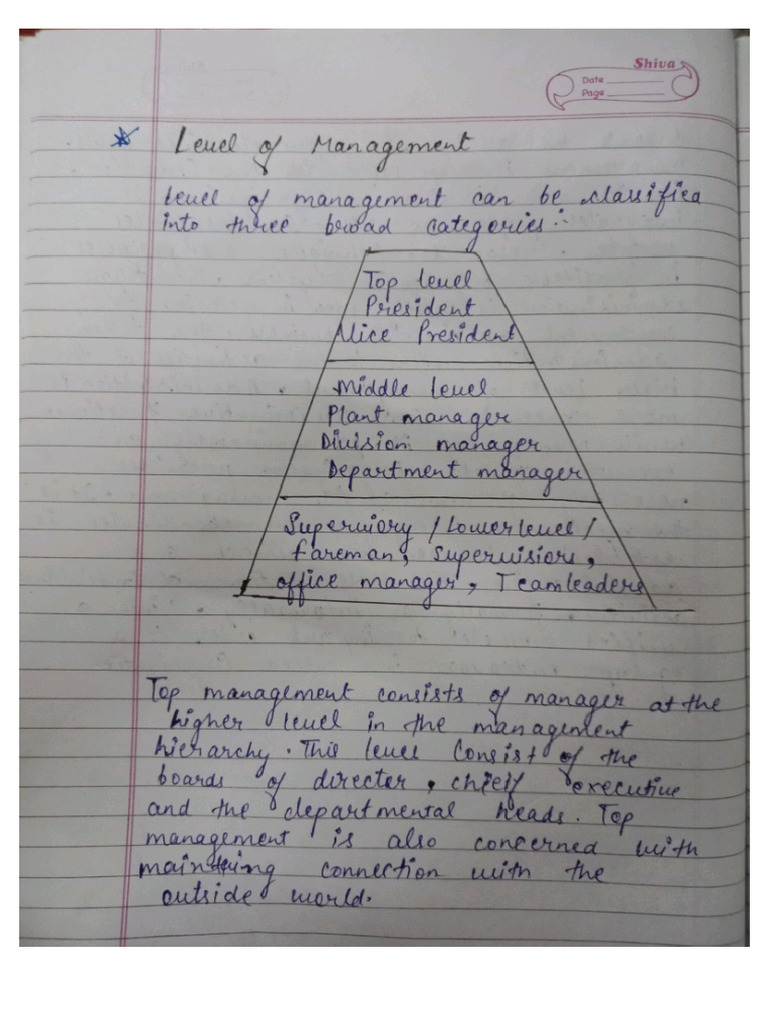 Shiva
Date
Page
Level of Management
level of management can be classified
into three broad categories:-
Top level
President
Vice President
Middle level
Plant manager
Division manager
Department manager
Superviory / Lower level /
fareman, supervisiors,
office manager, Team leaders
Top management consists of manager at the
higher level in the management
hierarchy. This level Consist of the
boards of directer, chief executive
and the departmental heads. Top
management is also concerned with
connection with the
outside world.